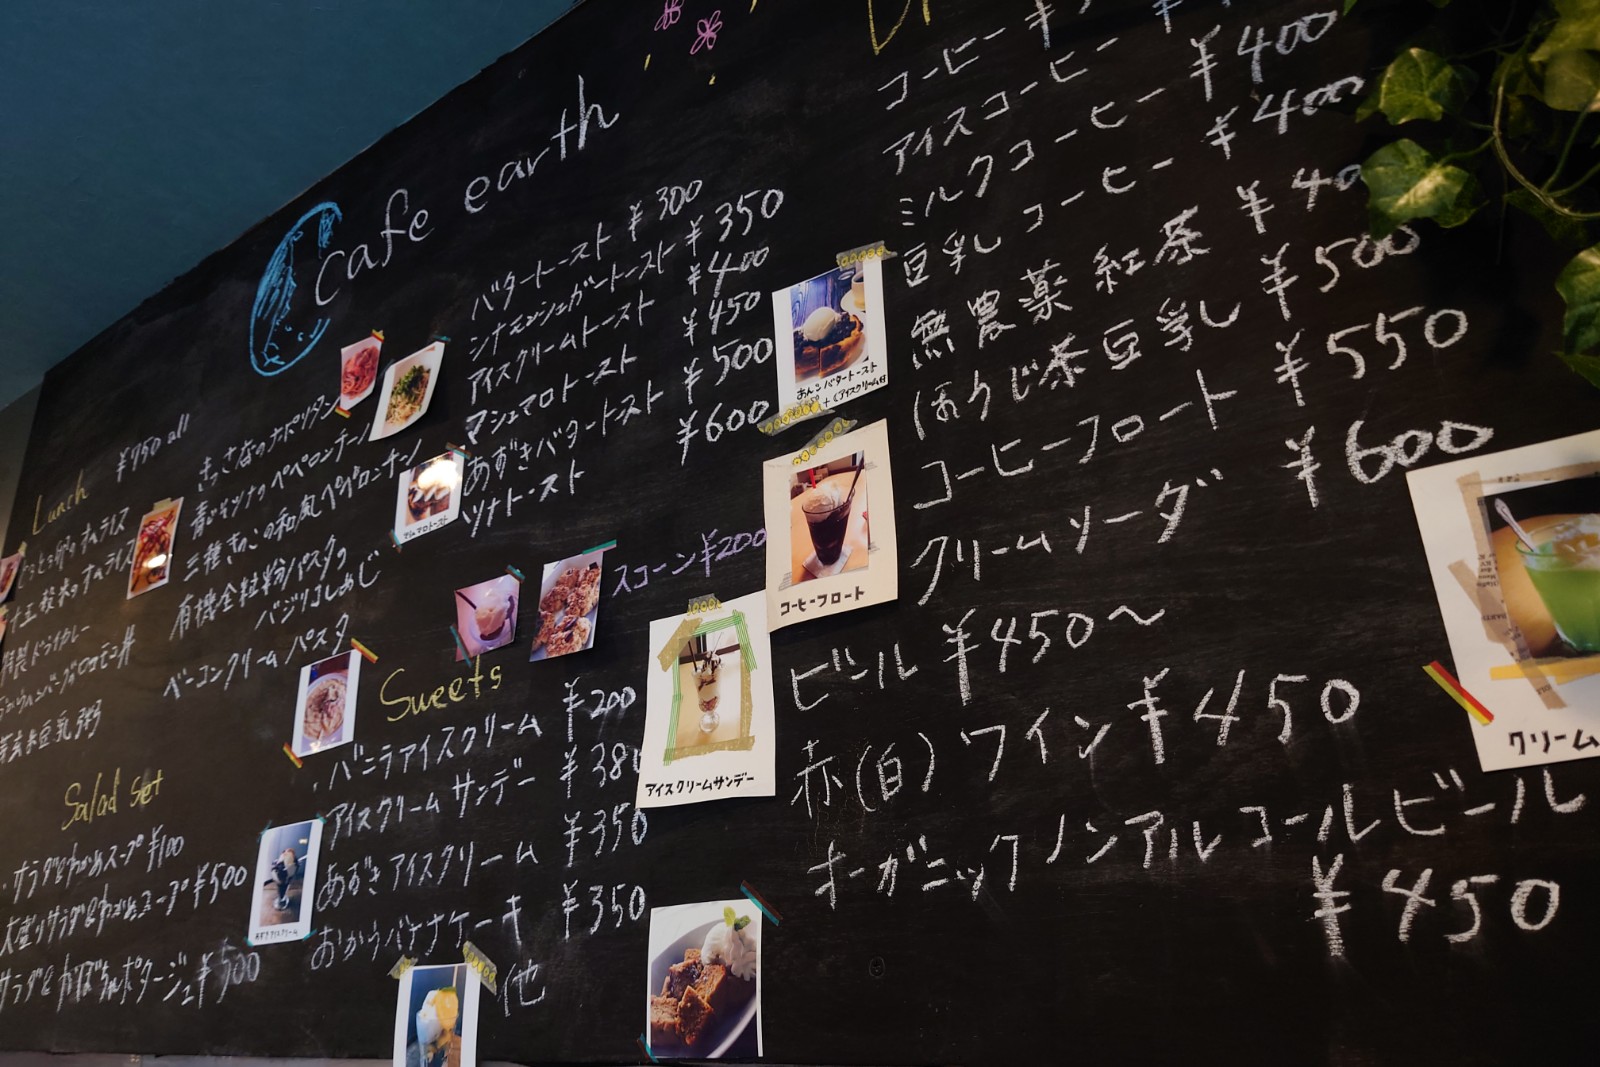 Cafe earth
Lunch ¥750 all
オムライス
オムライス
特製ドライカレー
きっさ店のナポリタン
青じそツナのペペロンチーノ
三種きのこの和風ペペロンチーノ
有機全粒粉パスタの
バジリコしめじ
ベーコンクリームパスタ
Salad set
・サラダとわかめスープ ¥100
大盛りサラダとわかめスープ ¥500
サラダとかぼちゃポタージュ ¥500
バタートースト ¥300
シナモンシュガートースト ¥350
アイスクリームトースト ¥400
マシュマロトースト ¥450
あずきバタートースト ¥500
ツナトースト ¥600
マシュマロトースト
スコーン ¥200
Sweets
・バニラアイスクリーム ¥200
アイスクリームサンデー ¥380
あずきアイスクリーム ¥350
おからバナナケーキ ¥350
他
あずきアイスクリーム
あんこバタートースト
コーヒーフロート
アイスクリームサンデー
コーヒー
アイスコーヒー
ミルクコーヒー ¥400
豆乳コーヒー ¥400
無農薬紅茶
ほうじ茶豆乳 ¥500
コーヒーフロート ¥550
クリームソーダ ¥600
ビール ¥450〜
赤(白)ワイン ¥450
オーガニックノンアルコールビール
¥450
クリーム